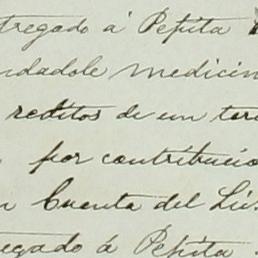 tregado á Pepita
ndadole medicin
reditos de un ter
por contribucio
n Cuenta del Lis
regado á Pepita